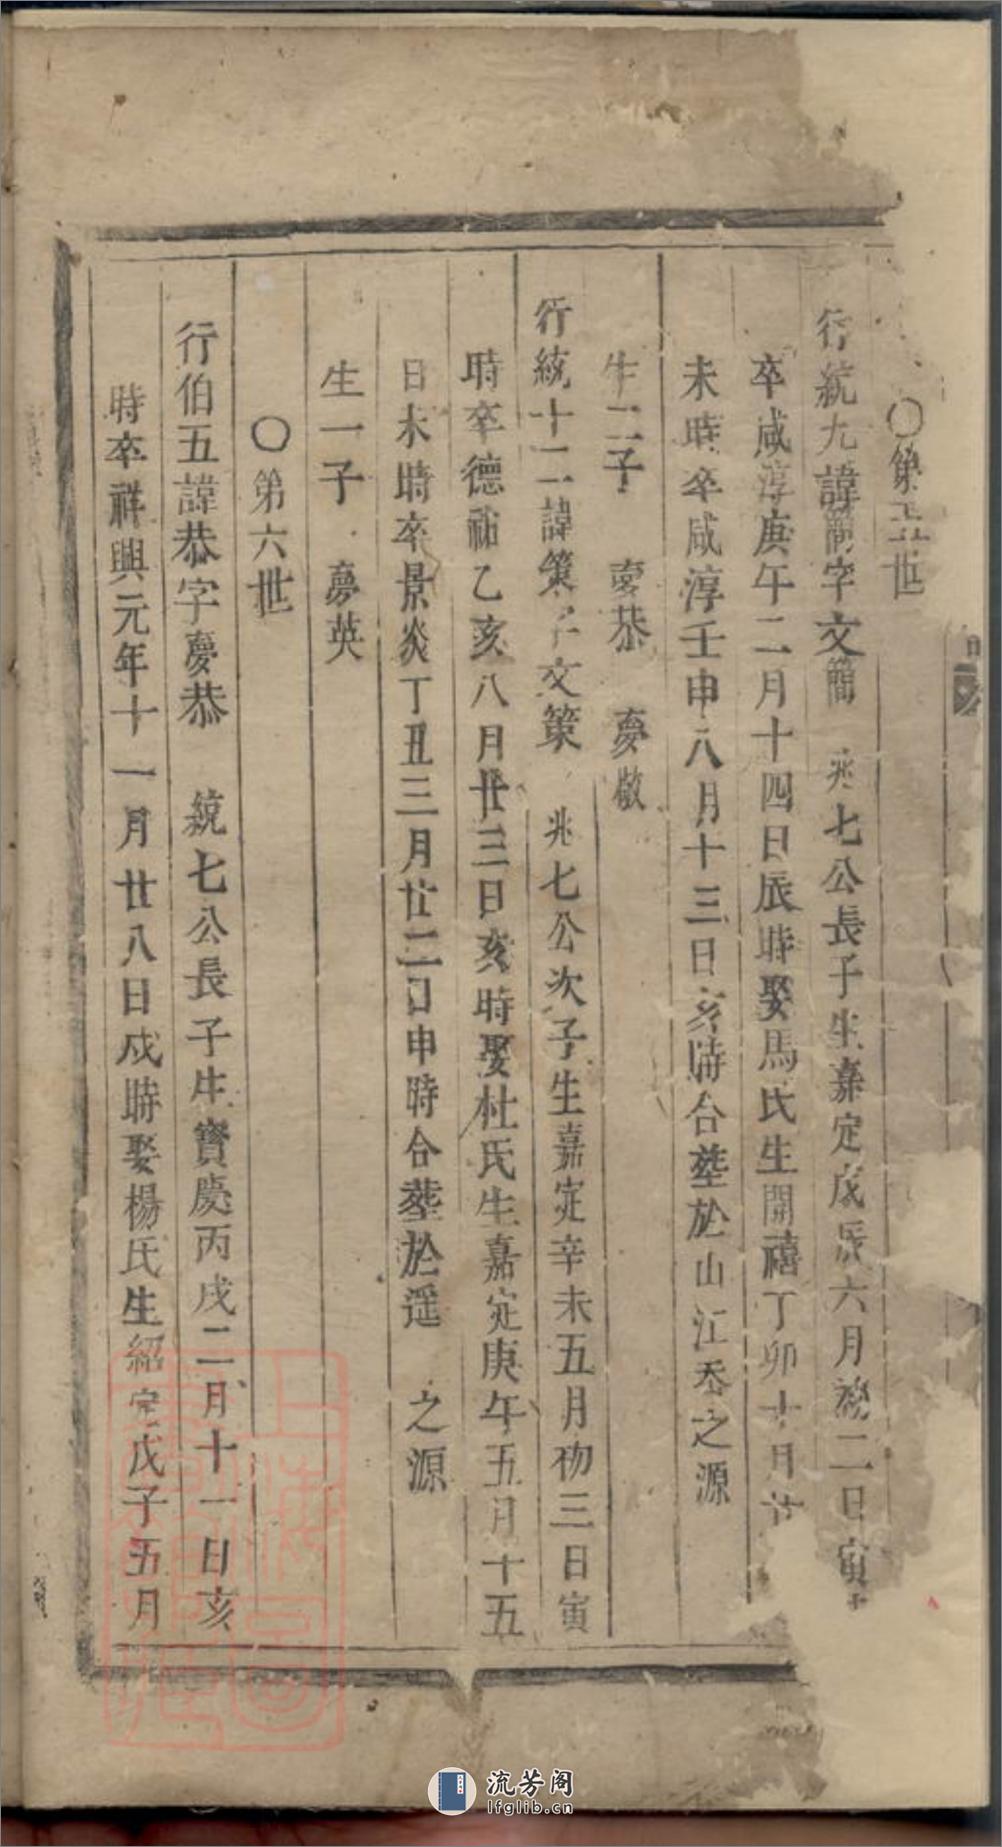 ○第五世
行統九諱簡字文簡 兆七公長子生嘉定戊辰六月初二日寅
卒咸淳庚午二月十四日辰時娶馬氏生開禧丁卯十月廿
未時卒咸淳壬申八月十三日亥時合塟於山江岙之源
生二子 夢恭 夢敬
行統十二諱策字文策 兆七公次子生嘉定辛未五月初三日寅
時卒德祐乙亥八月廿三日亥時娶杜氏生嘉定庚午五月十五
日未時卒景炎丁丑三月廿二日申時合塟於遥 之源
生一子 夢英
○第六世
行伯五諱恭字夢恭 統七公長子生寳慶丙戌二月十一日亥
時卒祥興元年十一月廿八日戌時娶楊氏生紹定戊子五月
上海圖書館藏
流芳阁
lfglib.cn